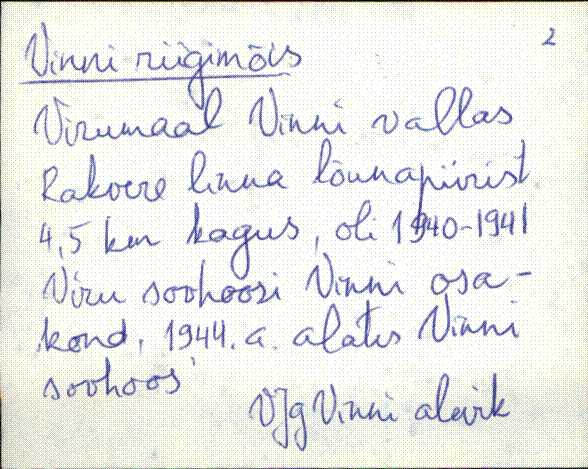 2
Vinni riigimõis
Virumaal Vinni vallas
Rakvere linna lõunapiirist
4,5 km kagus, oli 1940-1941
Viru sovhoosi Vinni osa-
kond, 1944. a. alates Vinni
sovhoos
VJg Vinni alevik